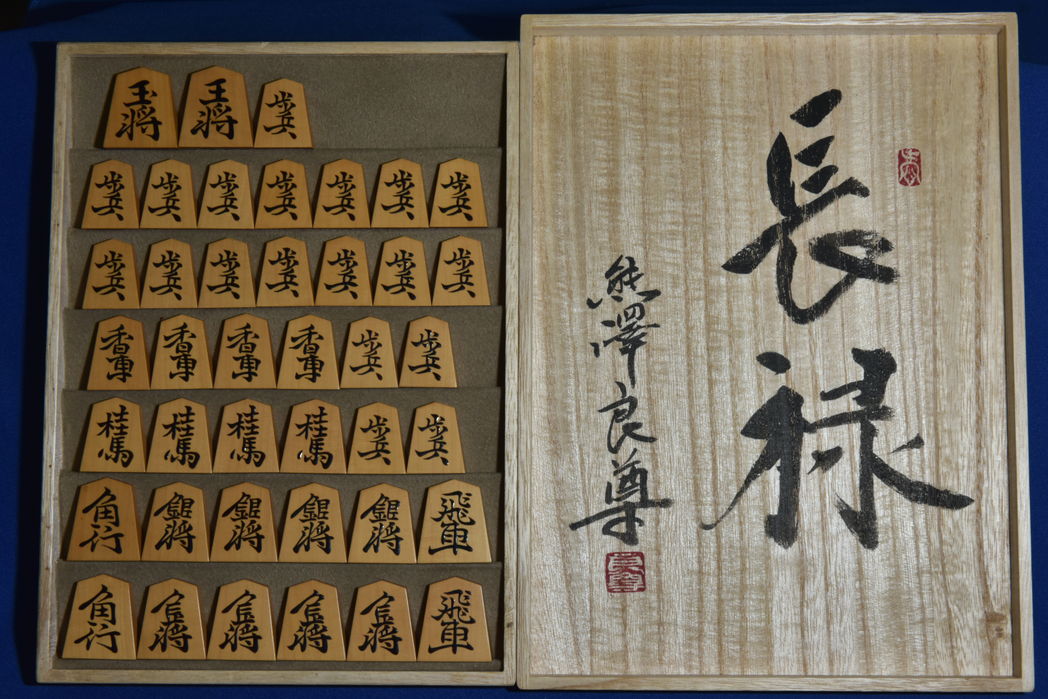 玉将 王将 歩兵
歩兵 歩兵 歩兵 歩兵 歩兵 歩兵 歩兵
歩兵 歩兵 歩兵 歩兵 歩兵 歩兵 歩兵
香車 香車 香車 香車 歩兵 歩兵
桂馬 桂馬 桂馬 桂馬 歩兵 歩兵
角行 銀将 銀将 銀将 銀将 飛車
角行 金将 金将 金将 金将 飛車
長禄
熊澤良尊
良尊